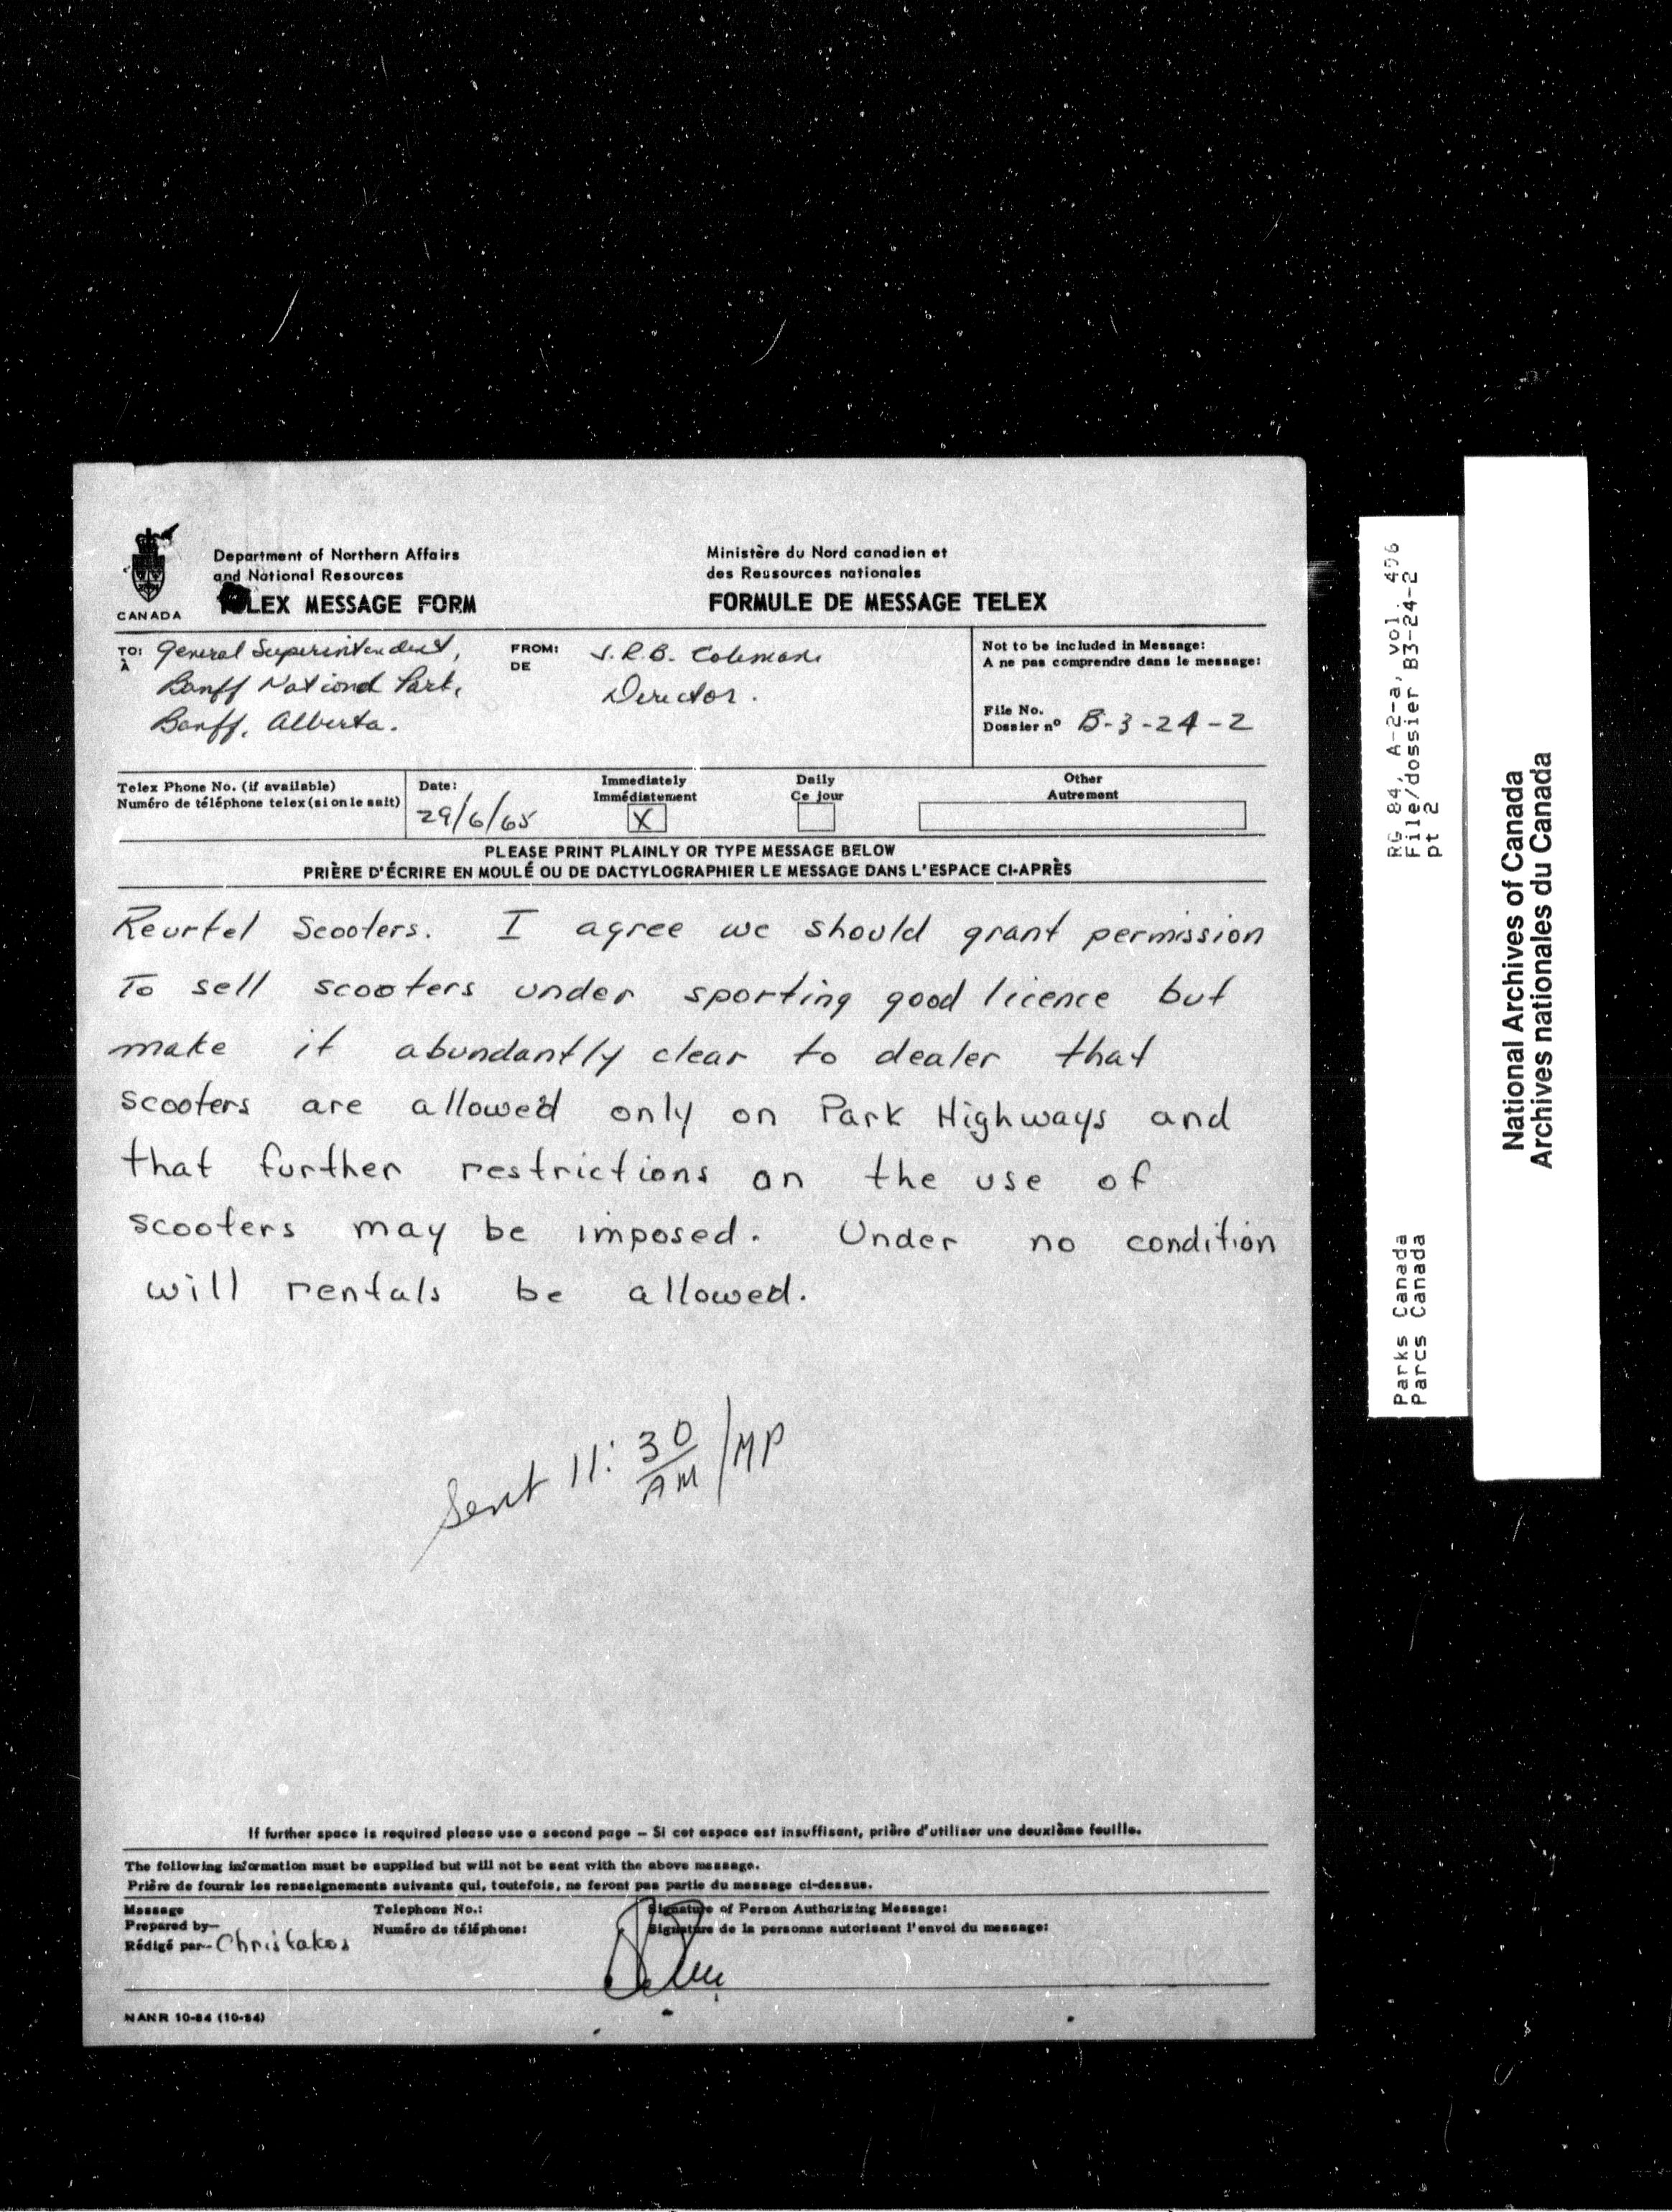 Department of Northern Affairs
and National Resources
LEX MESSAGE FORM
CANADA
Ministère du Nord canadien et
des Ressources nationales
FORMULE DE MESSAGE TELEX
TO:
À
General Superintendent,
Banff National Park,
Banff, Alberta.
FROM:
DE
J.R.B. Coleman
Director.
Not to be included in Message:
A ne pas comprendre dans le message:
File No.
Dossier nº B-3-24-2
Telex Phone No. (if available)
Numéro de téléphone telex (si on le sait)
Date:
29/6/65
Immediately
Immédiatement
X
Daily
Ce jour
Other
Autrement
PLEASE PRINT PLAINLY OR TYPE MESSAGE BELOW
PRIÈRE D'ÉCRIRE EN MOULÉ OU DE DACTYLOGRAPHIER LE MESSAGE DANS L'ESPACE CI-APRÈS
Reurtel Scooters. I agree we should grant permission
To sell scooters under sporting good licence but
make it abundantly clear to dealer that
scooters are allowed only on Park Highways and
that further restrictions on the use of
scooters may be imposed. Under no condition
will rentals be allowed.
Sent 11:30 AM/MP
If further space is required please use a second page – Si cet espace est insuffisant, prière d'utiliser une deuxième feuille.
The following information must be supplied but will not be sent with the above message.
Prière de fournir les renseignements suivants qui, toutefois, ne feront pas partie du message ci-dessus.
Message
Prepared by–
Rédigé par– Christakos
Telephone No.:
Numéro de téléphone:
Signature of Person Authorizing Message:
Signature de la personne autorisant l'envoi du message:
NANR 10-84 (10-54)
RG 84, A-2-a, vol. 406
File/dossier B3-24-2
pt 2
Parks Canada
Parcs Canada
National Archives of Canada
Archives nationales du Canada